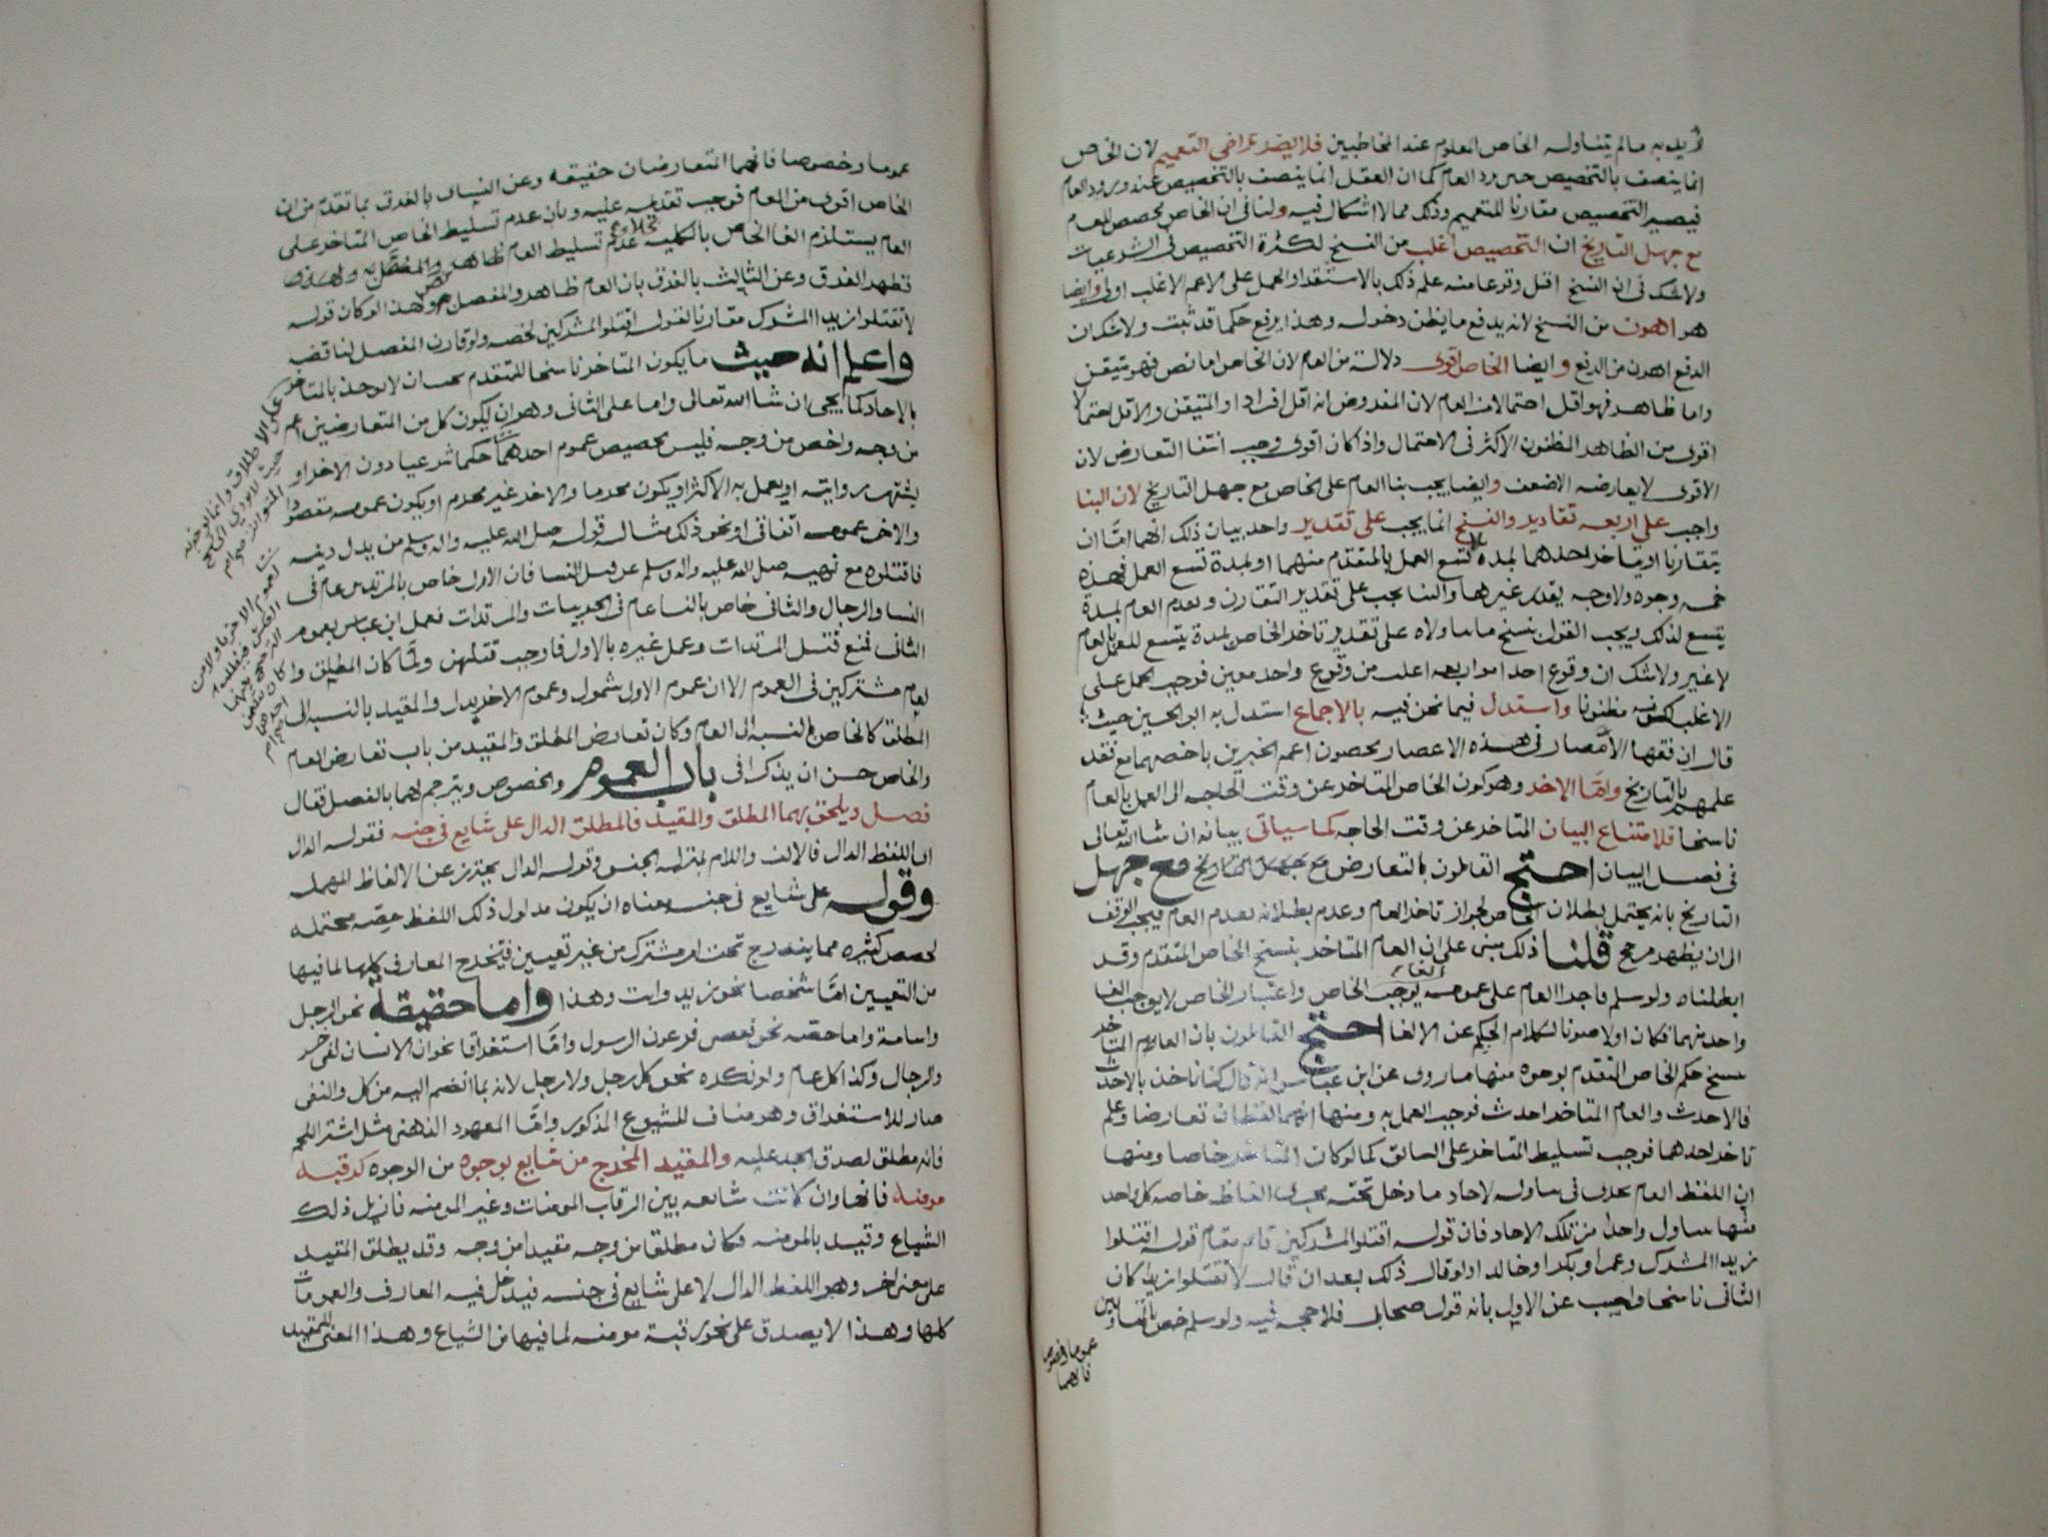 أريد به مالم يتناوله الخاص المعلوم عند المخاطبين فلا يضر تراخي التعميم لان الخاص
انما يتصف بالتخصيص حين ورد العام كما ان العقل انما يتصف بالتخصيص عند ورود العام
فيصير التخصيص مقارنا للتعميم وذلك مما لا اشكال فيه ولنا في ان الخاص مخصص للعام
مع جهل التاريخ ان التخصيص اغلب من النسخ لكثرة التخصيص في الشرعيات
ولا شك في ان النسخ اقل وقوعا منه علم ذلك بالاستقراء والحمل على الاعم الاغلب اولى وايضا
هو اهون من النسخ لانه يدفع ما يظن دخوله وهذا يرفع حكما قد ثبت ولا شك ان
الدفع اهون من الرفع وايضا الخاص اقوى دلالة من العام لان الخاص اما نص فهو متيقن
واما ظاهر فهو اقل احتمالا من العام لان المفروض انه اقل افرادا والمتيقن والاقل احتمالا
اقوى من الظاهر المظنون الاكثر في الاحتمال واذا كان اقوى وجب انتفا التعارض لان
الاقوى لا يعارضه الاضعف وايضا يجب بنا العام على الخاص مع جهل التاريخ لان البنا
واجب على اربعه تقادير والنسخ انما يجب على تقدير واحد بيان ذلك انهما امّا ان
يتقارنا او يتاخر احدهما بمدة لا تسع العمل بالمتقدم منهما او بمدة تسع العمل فهذه
خمسه وجوه ولا وجه يقدر غيرها والبنا يجب على تقدير التقارن وتقدم العام بمدة
يتسع لذلك ويجب القول بنسخ ما تناولاه على تقدير تاخر الخاص بمدة يتسع للعمل بالعام
لا غير ولا شك ان وقوع احد امور اربعه اغلب من وقوع واحد معين فوجب الحمل على
الاغلب لكونه مظنونا واستدل فيما نحن فيه بالاجماع استدل به ابو الحسين حيث
قال ان فقها الأمصار في هذه الاعصار يخصون اعم الخبرين باخصهما مع فقد
علمهم بالتاريخ وامّا الاخر وهو كون الخاص المتاخر عن وقت الحاجه الى العمل بالعام
ناسخا فلامتناع البيان المتاخر عن وقت الحاجه كما سياتي بيانه ان شا الله تعالى
في فصل البيان احتج القائلون بالتعارض مع جهل التاريخ مع جهل
التاريخ بانه يحتمل بطلان الخاص لجواز تاخر العام وعدم بطلانه بتقدم العام فيجب الوقف
الى ان يظهر مرجح قلنا ذلك مبنى على ان العام المتاخر ينسخ الخاص المتقدم وقد
ابطلناه ولو سلم فاجراء العام على عمومه يوجب الغاء الخاص واعتبار الخاص لا يوجب الغا
واحد منهما فكان اولا صونا لكلام الحكيم عن الالغا احتج القائلون بان العام المتاخر
ينسخ حكم الخاص المتقدم بوجوه منها ما روى عن ابن عباس انه قال كنا ناخذ بالاحدث
فالاحدث والعام المتاخر احدث فوجب العمل به ومنها انهما لفظان تعارضا وعلم
تاخر احدهما فوجب تسليط المتاخر على السابق كما لو كان المتاخر خاصا ومنها
ان اللفظ العام يجرى في تناوله لاحاد ما دخل تحته مجرى الفاظ خاصه كل واحد
منها يتناول واحدا من تلك الاحاد فان قوله اقتلوا المشركين قايم مقام قوله اقتلوا
زيدا المشرك وعمرا وبكرا وخالدا ولو قال ذلك بعد ان قال لا تقتلوا زيدا كان
الثاني ناسخا واجيب عن الاول بانه قول صحابي فلا حجه فيه ولو سلم خص بالمتقاومين
عموما وخصوصا
فانهما
عموما وخصوصا فانهما المتعارضان حقيقه وعن الثانى بالفرق بما تقدم من ان
الخاص اقوى من العام فوجب تقديمه عليه وبان عدم تسليط الخاص المتاخر على
العام يستلزم الغا الخاص بالكليه بخلاف عدم تسليط العام
فظهر الفرق وعن الثالث بالفرق بان العام ظاهر والمفصل نص وهذا لو كان قوله
لا تقتلوا زيدا المشرك مقارنا لقوله اقتلوا المشركين لخصه ولو قارن المفصل لناقضه
واعلم انه حيث ما يكون المتاخر ناسخا للمتقدم يجب ان لا يوخذ بالمتاخر
بالاحاد كما يجي ان شا الله تعالى واما على الثانى وهو ان يكون كل من المتعارضين اعم
من وجه واخص من وجه فليس تخصيص عموم احدهما حكما شرعيا دون الاخر او
يشتهر روايته او يعمل به الاكثر او يكون محرما والاخر غير محرم او يكون عمومه مقصودا
والاخر عمومه اتفاقى او نحو ذلك مثاله قوله صلى الله عليه واله وسلم من بدل دينه
فاقتلوه مع نهيه صلى الله عليه واله وسلم عن قتل النسا فان الاول خاص بالمرتدين عام في
النسا والرجال والثاني خاص بالنسا عام في الحربيات والمرتدات فعمل ابن عباس بعموم
الثاني فمنع قتل المرتدات وعمل غيره بالاول فاوجب قتلهن ولمّا كان المطلق و
لعام مشتركين في العموم الا ان عموم الاول شمول وعموم الاخر بدل والمقيد بالنسبه الى
المطلق كالخاص بالنسبه الى العام وكان تعارض المطلق والمقيد من باب تعارض العام
والخاص حسن ان يذكرا في باب العموم والخصوص ويترجم لهما بالفصل فقال
فصل ويلحق بهما المطلق والمقيد فالمطلق الدال على شايع في جنسه فقوله الدال
اى اللفظ الدال فالالف واللام بمنزله الجنس وقوله الدال يحترز عن الالفاظ المهمله
وقوله على شايع في جنسه معناه ان يكون مدلول ذلك اللفظ حصّه محتمله
لحصص كثيره مما يندرج تحت امر مشترك من غير تعيين فتخرج المعارف كلها لما فيها
من التعيين امّا شخصا نحو زيد وانت وهذا واما حقيقة نحو الرجل
واسامة واما حصّه نحو فعصى فرعون الرسول وامّا استغراقا نحو ان الانسان لفى خسر
والرجال وكذا كل عام ولو نكره نحو كل رجل ولا رجل لانه بما انضم اليه من كل والنفى
صار للاستغراق وهو مناف للشيوع المذكور وامّا المعهود الذهني مثل اشتر اللحم
فانه مطلق لصدق الحد عليه والمقيد المخرج من شايع بوجوه من الوجوه كرقبه
مومنه فانها وان كانت شايعه بين الرقاب المومنات وغير المومنه فازيل ذلك
الشياع وقيد بالمومنه فكان مطلقا من وجه مقيدا من وجه وقد يطلق المقيد
على معنى اخر وهو اللفظ الدال لا على شايع في جنسه فيدخل فيه المعارف والعمومات
كلها وهذا لا يصدق على نحو رقبة مومنه لما فيها من الشياع وهذا المعنى للمقيد
على الاطلاق وانما